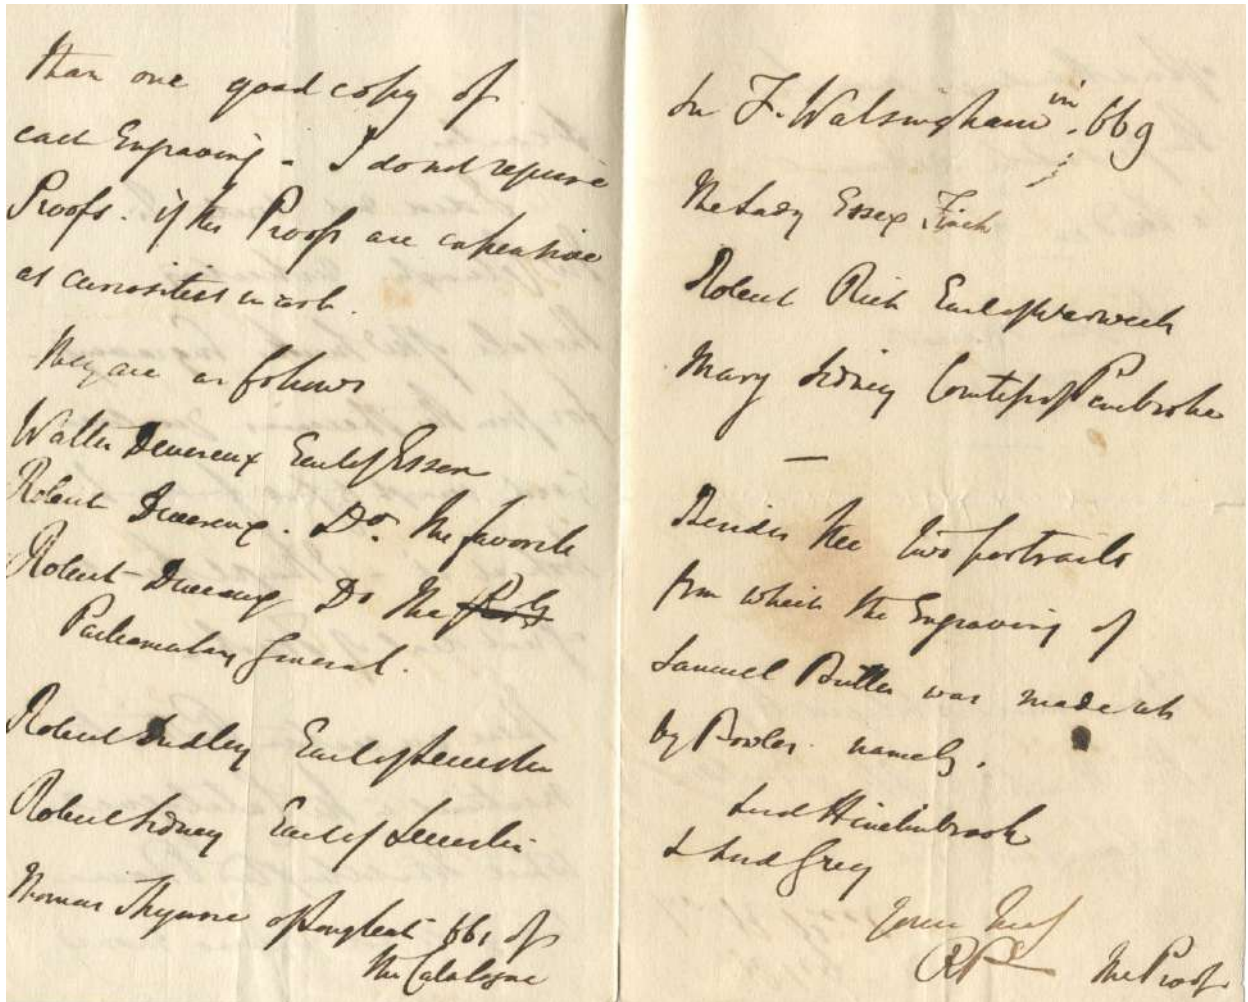 than one good copy of
each Engraving - I do not require
Proofs. if the Proofs are expensive
as curiosities
They are as follows
Walter Devereux Earl of Essex
Robert Devereux. Do. the favorite
Robert Devereux Do the
Parliamentary General.
Robert Dudley Earl of Leicester
Robert Sidney Earl of Leicester
Thomas Thynne of Longleat 661 of
the Catalogue
Sr F. Walsingham in 669
The Lady Essex Finch
Robert Rich Earl of Warwick
Mary Sidney Comtess of Pembroke
Besides the two portraits
from which the Engraving of
Samuel Butler was made
by namely.
Lord Hinchinbrook
& Lord Grey
Yours truly
The Proof